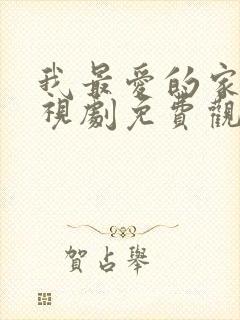 我最愛的家
視劇免費觀
賀占舉